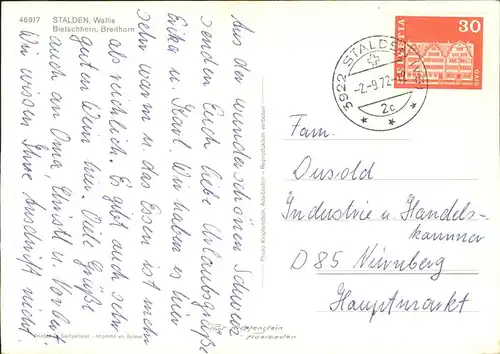 46917 STALDEN, Wallis
Bietschhorn, Breithorn
Aus der wunderschönen Schweiz
senden Euch liebe Urlaubsgrüße
Erika u. Karl. Wir haben es hier
sehr warm u. das Essen ist mehr
als reichlich. Es gibt auch sehr
guten Wein hier. Viele Grüße
auch an Oma, Christl u. Norbert
Wir wissen Ihre Anschrift nicht.
Photo Klopfenstein, Adelboden - Reproduktion verboten
3922 STALDEN
-2.-9.72-
2c
HELVETIA
30
GAIS
Fam.
Dusold
Industrie u. Handels-
kammer
D 85 Nürnberg
Hauptmarkt
Klopfenstein
Adelboden